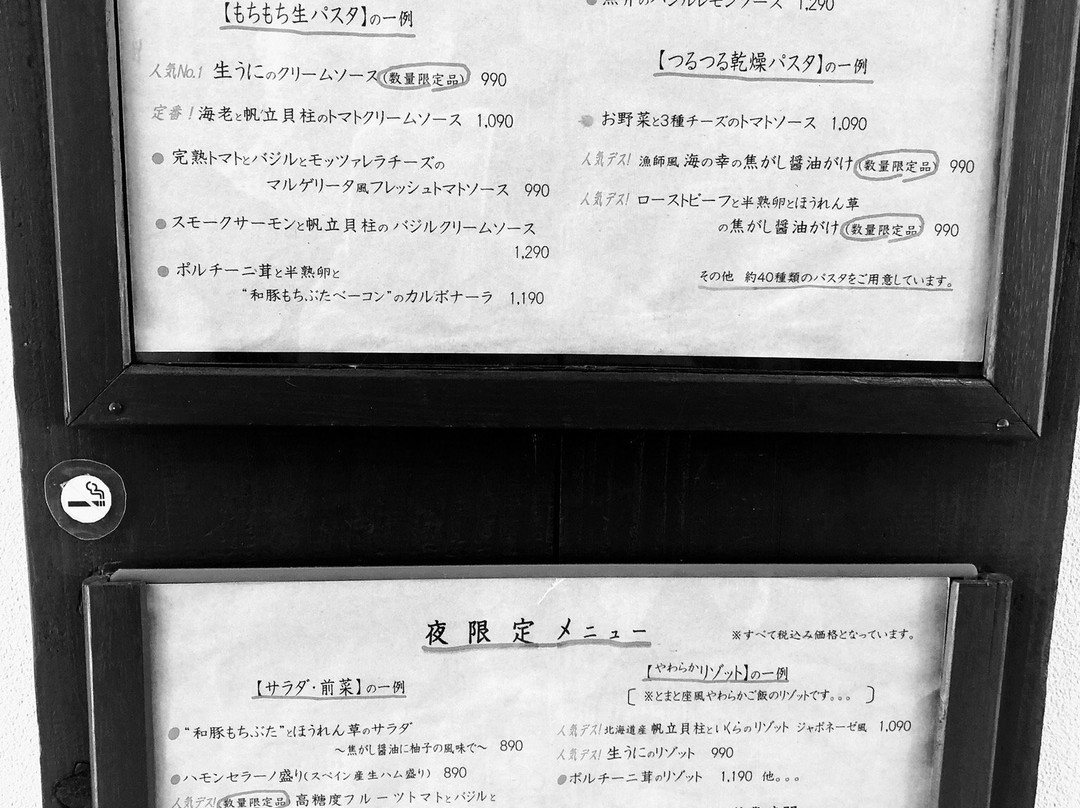 【もちもち生パスタ】の一例
人気No.1 生うにのクリームソース(数量限定品) 990
定番! 海老と帆立貝柱のトマトクリームソース 1,090
● 完熟トマトとバジルとモッツァレラチーズの
マルゲリータ風フレッシュトマトソース 990
● スモークサーモンと帆立貝柱のバジルクリームソース
1,290
● ポルチーニ茸と半熟卵と
“和豚もちぶたベーコン”のカルボナーラ 1,190
のバジルレモンソース 1,290
【つるつる乾燥パスタ】の一例
● お野菜と3種チーズのトマトソース 1,090
人気デス! 漁師風 海の幸の焦がし醤油がけ(数量限定品) 990
人気デス! ローストビーフと半熟卵とほうれん草
の焦がし醤油がけ(数量限定品) 990
その他 約40種類のパスタをご用意しています。
夜限定メニュー
※すべて税込み価格となっています。
【サラダ・前菜】の一例
● “和豚もちぶた”とほうれん草のサラダ
〜焦がし醤油に柚子の風味で〜 890
● ハモンセラーノ盛り(スペイン産生ハム盛り) 890
人気デス!(数量限定品) 高糖度フルーツトマトとバジルと
【やわらかリゾット】の一例
[ ※とまと座風やわらかご飯のリゾットです。。。 ]
人気デス! 北海道産 帆立貝柱といくらのリゾット ジャポネーゼ風 1,090
人気デス! 生うにのリゾット 990
● ポルチーニ茸のリゾット 1,190 他。。。